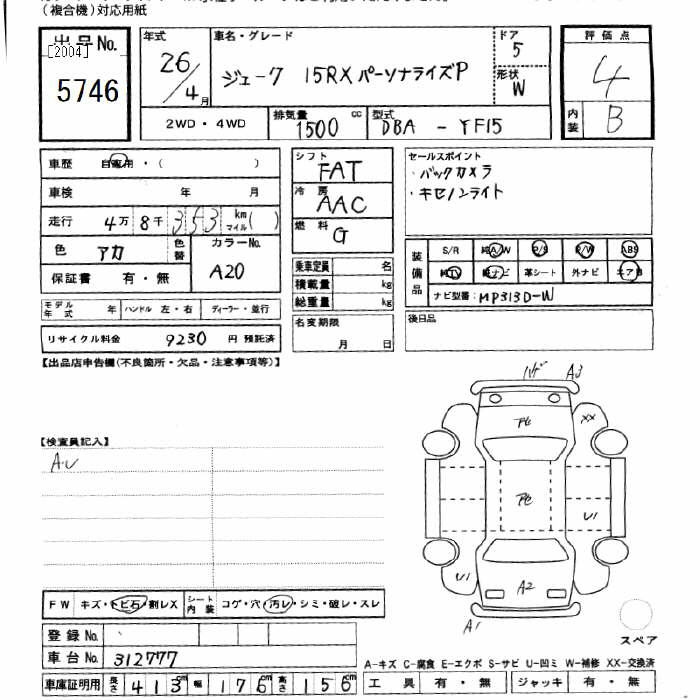 (複合機)対応用紙
出品No.
[2004]
5746
年式
26/4月
車名・グレード
ジューク 15RX パーソナライズP
ドア
5
形状
W
評価点
4
内装
B
2WD・4WD
排気量
1500 cc
型式
DBA - YF15
車歴 自家用・( )
車検 年 月
走行 4万8千353 km マイル( )
色 アカ
色替
カラーNo.
A20
保証書 有・無
シフト
FAT
冷房
AAC
燃料
G
乗車定員 名
積載量 kg
総重量 kg
名変期限
月 日
セールスポイント
・バックカメラ
・キセノンライト
装備品
S/R 純A/W P/S P/W ABS
純TV 純ナビ 革シート 外ナビ エアB
ナビ型番:MP313D-W
後日品
モデル年式 年
ハンドル 左・右
ディーラー・並行
リサイクル料金 9230 円 預託済
【出品店申告欄(不良箇所・欠品・注意事項等)】
【検査員記入】
A.U
ハゲ A3
XX
U1
U1
A2
A1
スペア
FW キズ・トビ石・割レX
シート内装
コゲ・穴・汚レ・シミ・破レ・スレ
登録No.
車台No. 312777
車庫証明用 長さ 413cm 幅 176cm 高さ 156cm
A-キズ C-腐食 E-エクボ S-サビ U-凹ミ W-補修 XX-交換済
工具 有・無 ジャッキ 有・無